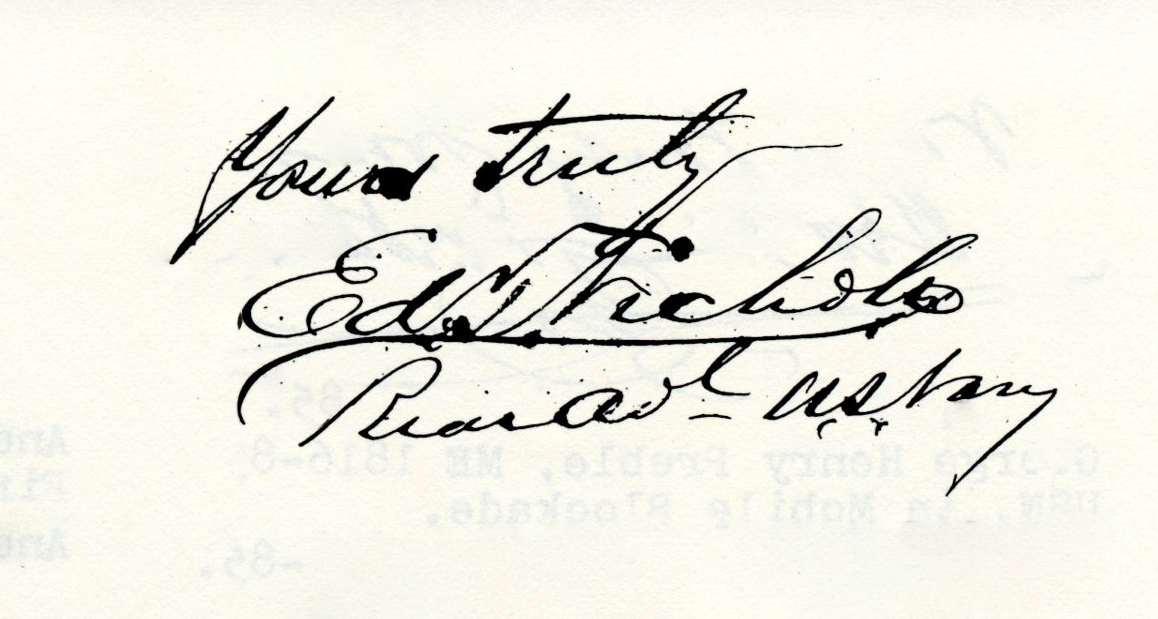 Yours truly
Ed. T. Nichols
Rear Adl US Navy
George Henry Preble, ME 1816-8
USN, in Mobile Blockade.
-85.